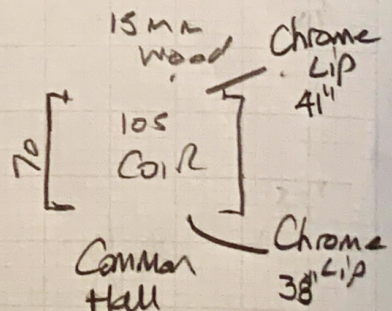 15mm
Wood
Chrome
Lip
41"
70
105
COIR
Chrome
Lip
38"
Common
Hall